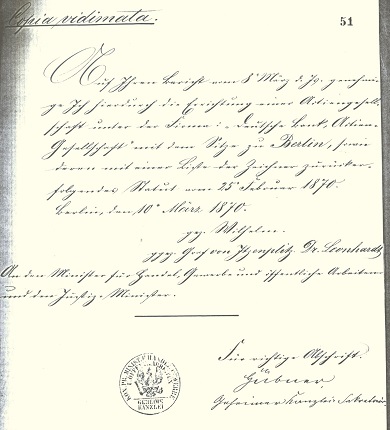 Copia vidimata.
51
Auf Ihren Bericht vom 8t März d. Js. genehmi-
ge Ich hierdurch die Errichtung einer Actiengesell-
schaft unter der Firma: „Deutsche Bank Actien-
Gesellschaft“ mit dem Sitze zu Berlin, sowie
deren mit einer Liste der Zeichner zurücker-
folgendes Statut vom 25t Februar 1870.
Berlin, den 10t März 1870.
gez. Wilhelm.
ggez. Graf von Itzenplitz. Dr. Leonhardt
An den Minister für Handel, Gewerbe und öffentliche Arbeiten
und den Justiz-Minister.
Für richtige Abschrift.
Hübner
Geheimer Kanzlei-Sekretair